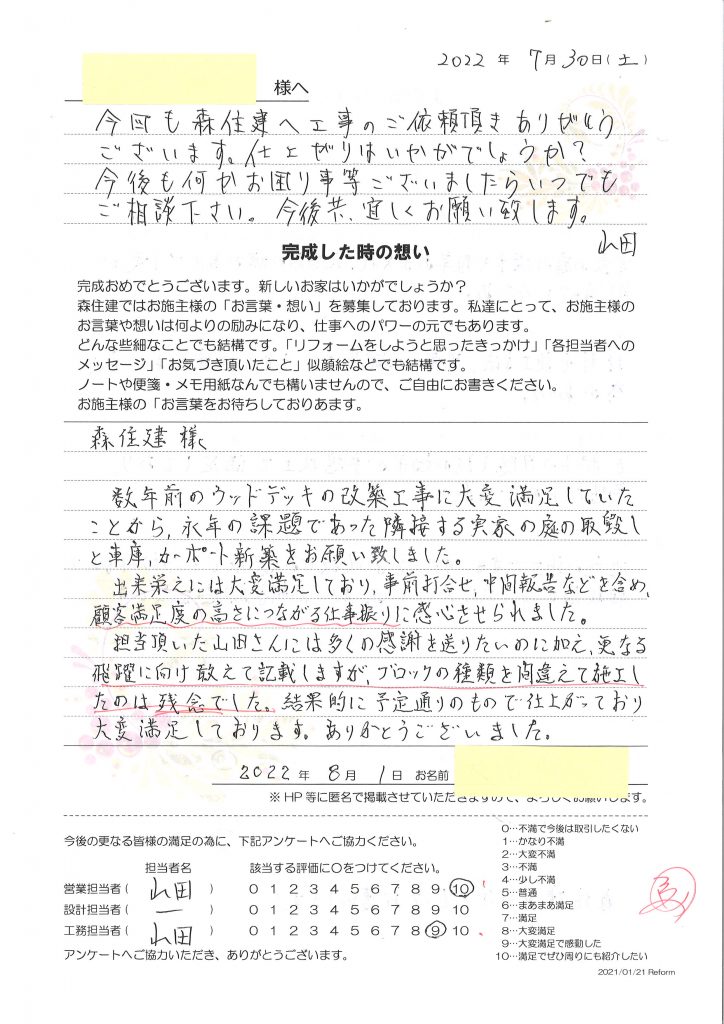 2022 年 7月 30日(土)
様へ
今回も森住建へ工事のご依頼頂きありがとう
ございます。仕上がりはいかがでしょうか?
今後も何かお困り事等ございましたらいつでも
ご相談下さい。今後共、宜しくお願い致します。
山田
完成した時の想い
完成おめでとうございます。新しいお家はいかがでしょうか?
森住建ではお施主様の「お言葉・想い」を募集しております。私達にとって、お施主様の
お言葉や想いは何よりの励みになり、仕事へのパワーの元でもあります。
どんな些細なことでも結構です。「リフォームをしようと思ったきっかけ」「各担当者への
メッセージ」「お気づき頂いたこと」似顔絵などでも結構です。
ノートや便箋・メモ用紙なんでも構いませんので、ご自由にお書きください。
お施主様の「お言葉をお待ちしておりあます。
森住建 様
数年前のウッドデッキの改築工事に大変満足していた
ことから、永年の課題であった隣接する実家の庭の取毀し
と車庫、カーポート新築をお願い致しました。
出来栄えには大変満足しており、事前打合せ、中間報告などを含め、
顧客満足度の高さにつながる仕事振りに感心させられました。
担当頂いた山田さんには多くの感謝を送りたいのに加え、更なる
飛躍に向け敢えて記載しますが、ブロックの種類を間違えて施工し
たのは残念でした。結果的に予定通りのもので仕上がっており
大変満足しております。ありがとうございました。
2022 年 8月 1日 お名前
※HP等に匿名で掲載させていただきますので、よろしくお願いします。
今後の更なる皆様の満足の為に、下記アンケートへご協力ください。
担当者名 該当する評価に○をつけてください。
営業担当者( 山田 ) 0 1 2 3 4 5 6 7 8 9 10
設計担当者( ー ) 0 1 2 3 4 5 6 7 8 9 10
工務担当者( 山田 ) 0 1 2 3 4 5 6 7 8 9 10
アンケートへご協力いただき、ありがとうございます。
0…不満で今後は取引したくない
1…かなり不満
2…大変不満
3…不満
4…少し不満
5…普通
6…まあまあ満足
7…満足
8…大変満足
9…大変満足で感動した
10…満足でぜひ周りにも紹介したい
2021/01/21 Reform